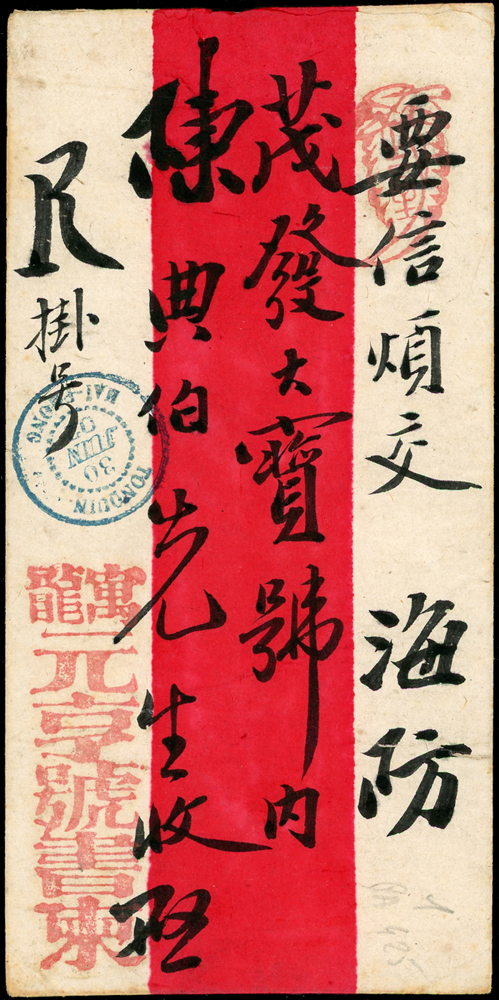 要信煩交 海防
茂發大寶號內
陳典伯先生收啟
R
掛号
HAI-PHONG
TONQUIN
30
JUIN
寓龍
元亨號書柬